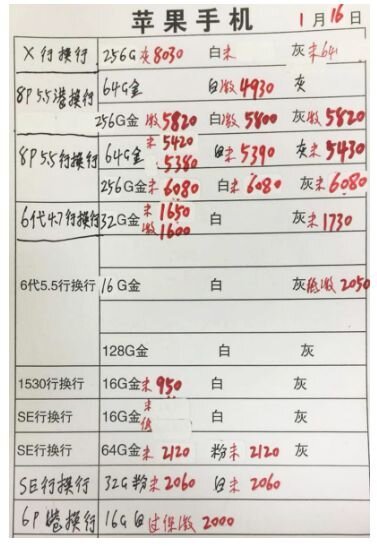 苹果手机 1月16日
X 行换行 256G灰8030 白未 灰未64
8P 5.5港换行 64G金 白激4930 灰
256G金激5820 白激5800 灰激5820
8P 5.5行换行 64G金未5420 5380 白未5390 灰未5430
256G金未6080 白未6080 灰未6080
6代4.7行换行 32G金未1650 激1600 白 灰未1730
6代5.5行换行 16G金 白 灰低激2050
128G金 白 灰
1530行换行 16G金未950 白 灰
SE行换行 16G金未低 白 灰
SE行换行 64G金未2120 粉未2120 灰
SE行换行 32G粉未2060 白未2060
6P港换行 16G白过保激2000